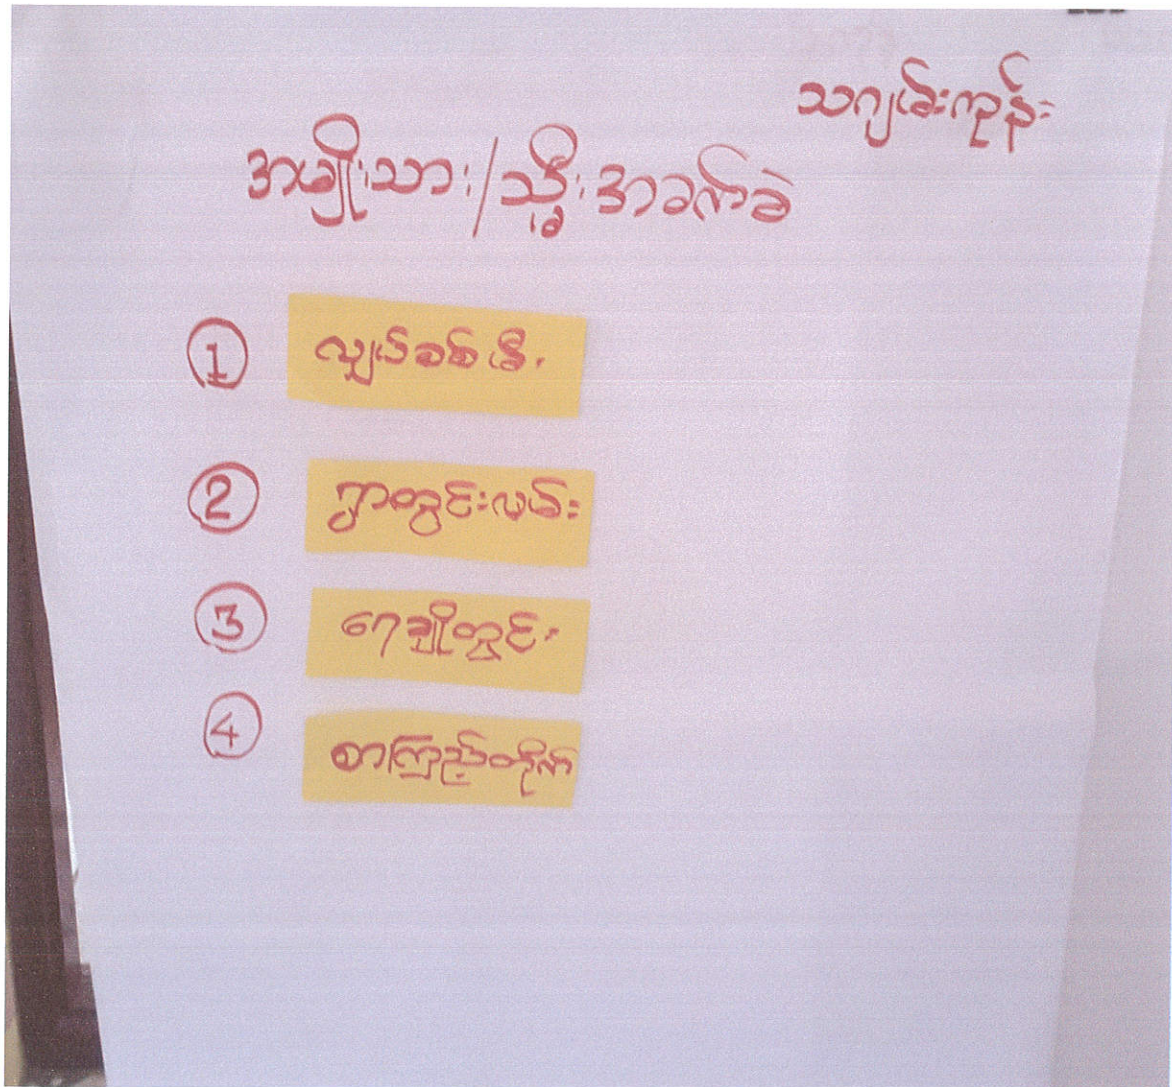 သဂျမ်းကုန်း
အမျိုးသား/သ္မီးအခက်ခဲ
① လျှပ်စစ်မီး
② ရွာတွင်းလမ်း
③ ရေချိုတွင်း
④ စာကြည့်တိုက်